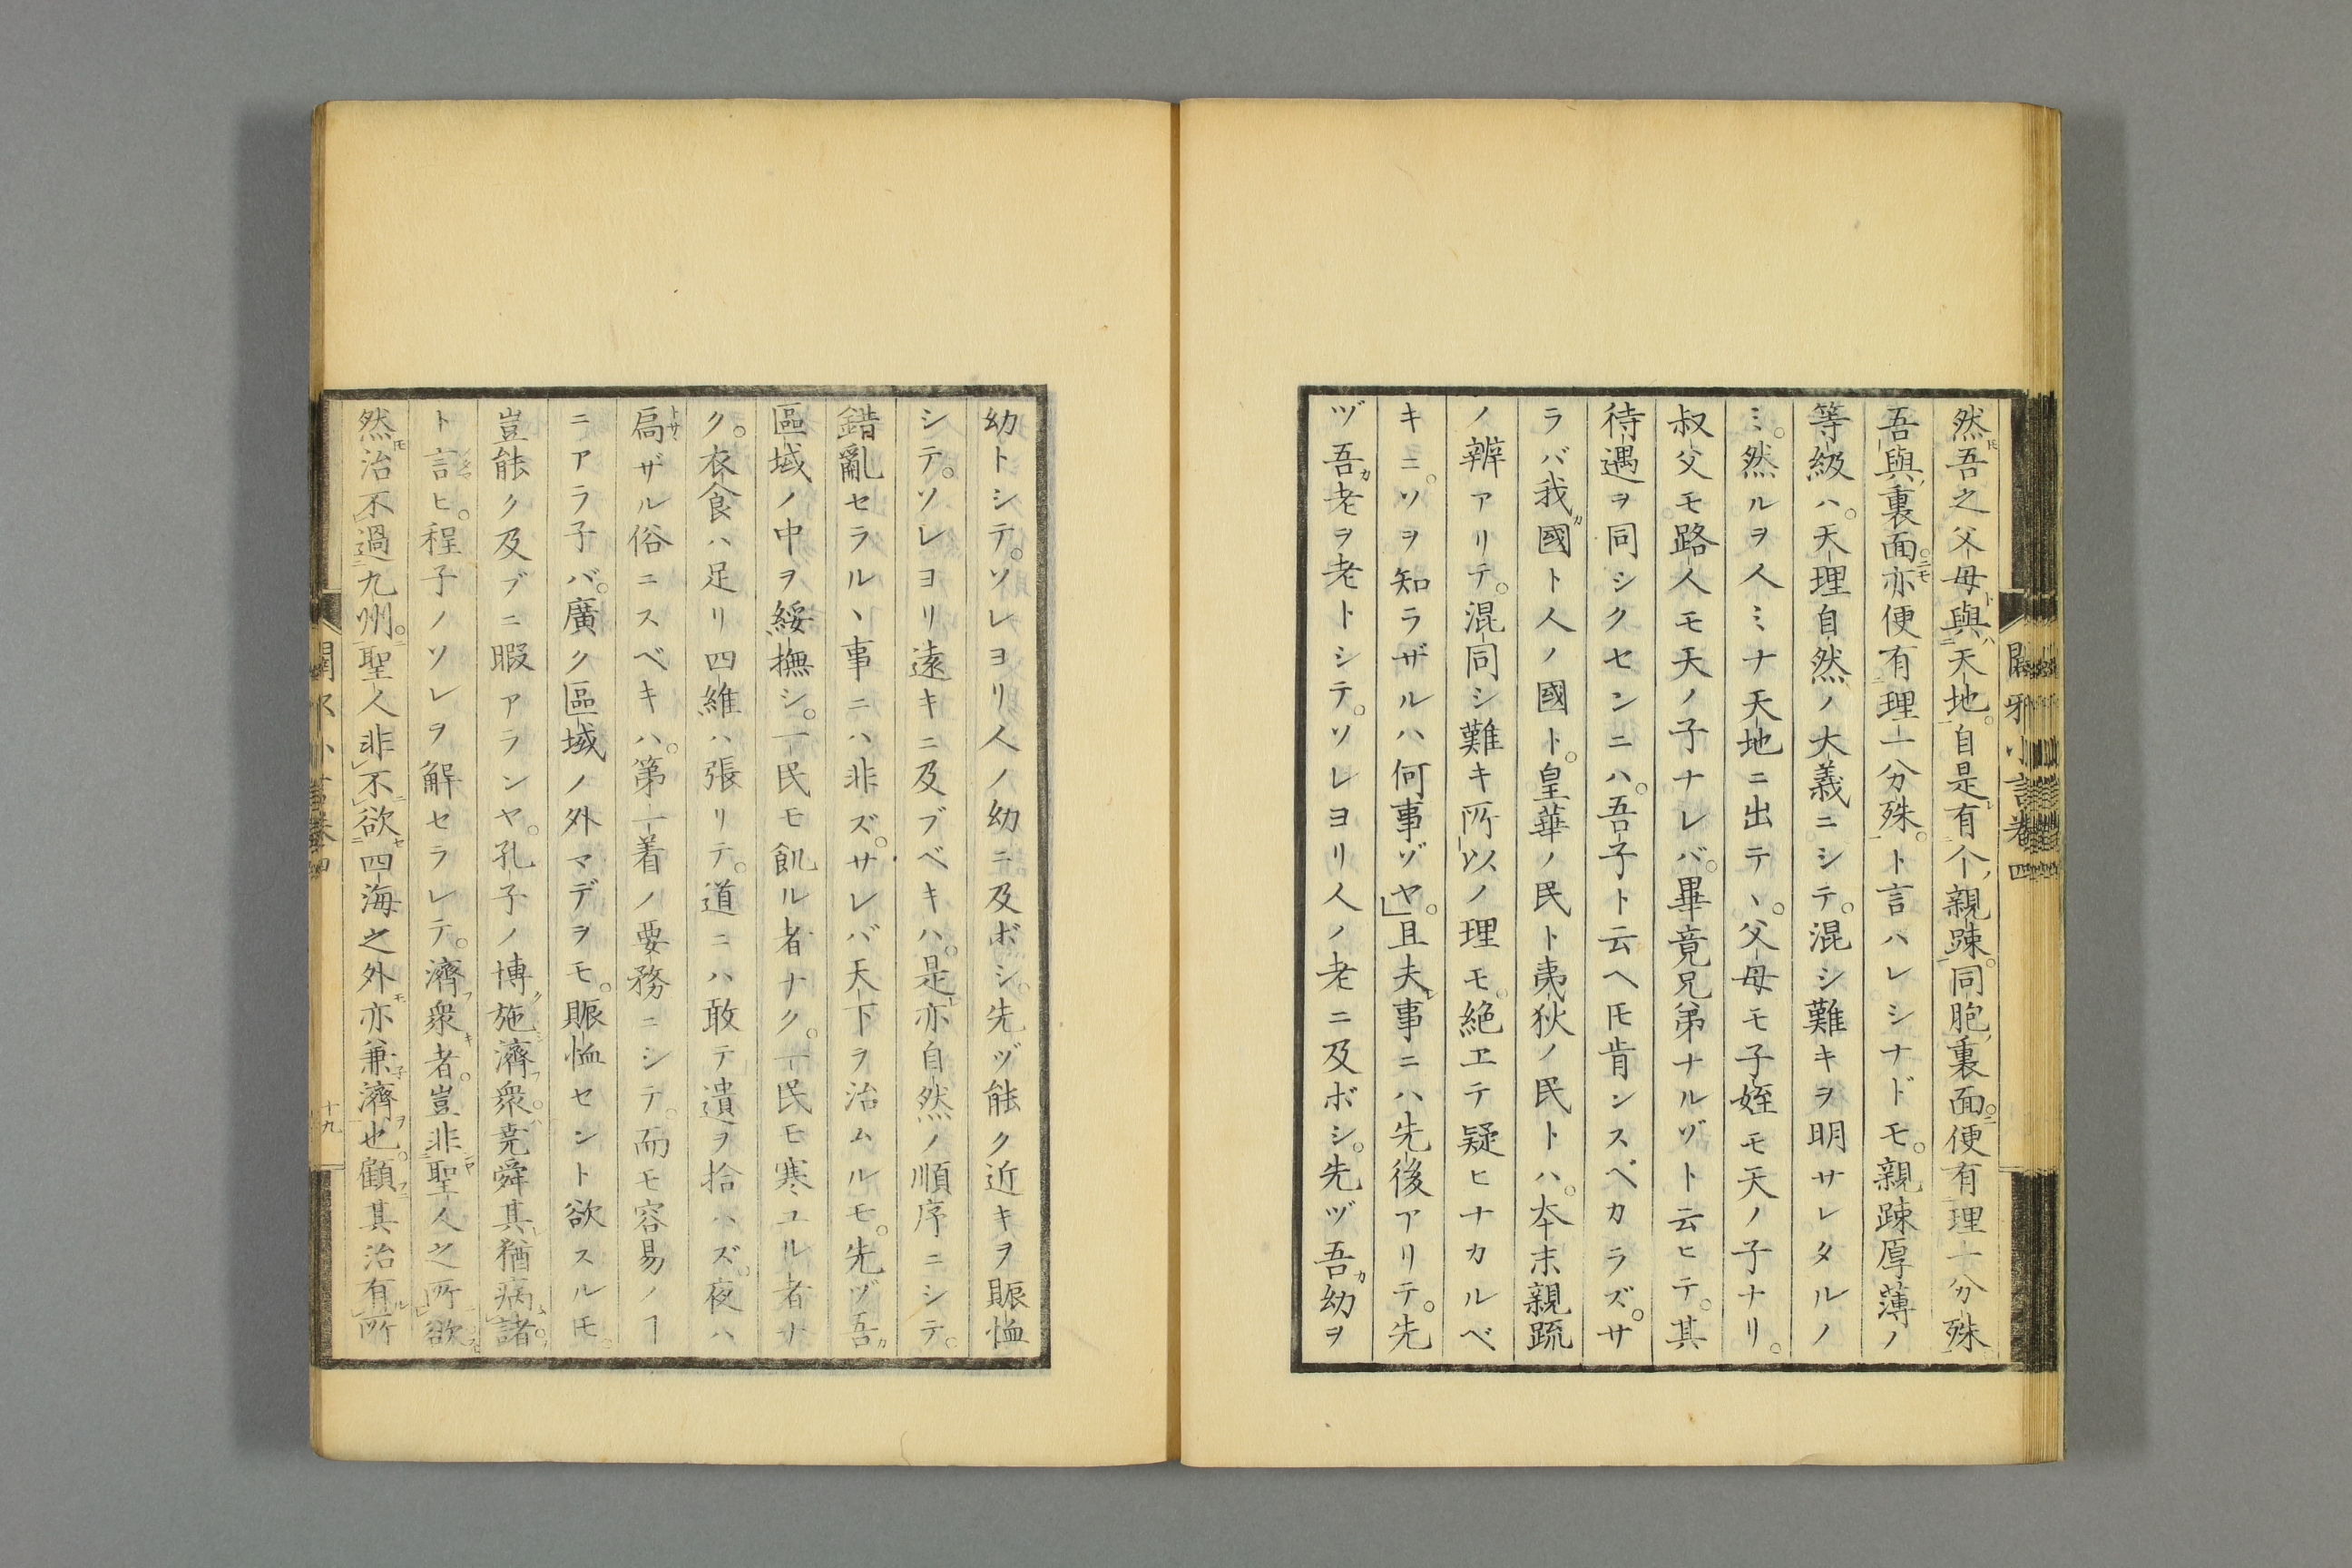 闢邪小言卷四
然吾之父母與天地。自是有个親踈。同胞裏面。便有理一分殊。
吾與裏面。亦便有理一分殊。ト言ハレシナドモ。親踈厚薄ノ
等級ハ。天理自然ノ大義ニシテ。混シ難キヲ明サレタルノ
ミ。然ルヲ人ミナ天地ニ出テヽ。父母モ子姪モ天ノ子ナリ。
叔父モ路人モ天ノ子ナレバ。畢竟兄弟ナルゾト云ヒテ。其
待遇ヲ同シクセンニハ。吾子ト云ヘ𪜈肯ンスベカラズ。サ
ラバ我國ト人ノ國ト。皇華ノ民ト夷狄ノ民トハ。本末親疏
ノ辨アリテ。混同シ難キ所以ノ理モ。絶エテ疑ヒナカルベ
キニ。ソヲ知ラザルハ何事ゾヤ。」且夫事ニハ先後アリテ。先
ヅ吾老ヲ老トシテ。ソレヨリ人ノ老ニ及ボシ。先ヅ吾幼ヲ
幼トシテ。ソレヨリ人ノ幼ニ及ボシ。先ヅ能ク近キヲ賑恤
シテ。ソレヨリ遠キニ及ブベキハ。是亦自然ノ順序ニシテ。
錯亂セラルヽ事ニハ非ズ。サレバ天下ヲ治ムルモ。先ヅ吾
區域ノ中ヲ綏撫シ。一民モ飢ル者ナク。一民モ寒ユル者ナ
ク。衣食ハ足リ四維ハ張リテ。道ニハ敢テ遺ヲ拾ハズ。夜ハ
扃ザル俗ニスベキハ。第一着ノ要務ニシテ。而モ容易ノヿ
ニアラ子バ。廣ク區域ノ外マデヲモ。賑恤セント欲スルモ。
豈能ク及ブニ暇アランヤ。孔子ノ博施濟衆。堯舜其猶病諸。
ト言ヒ。程子ノソレヲ解セラレテ。濟衆者。豈非聖人之所欲
然治不過九州。聖人非不欲四海之外亦兼濟也。顧其治有所
闢邪小言卷四
十九